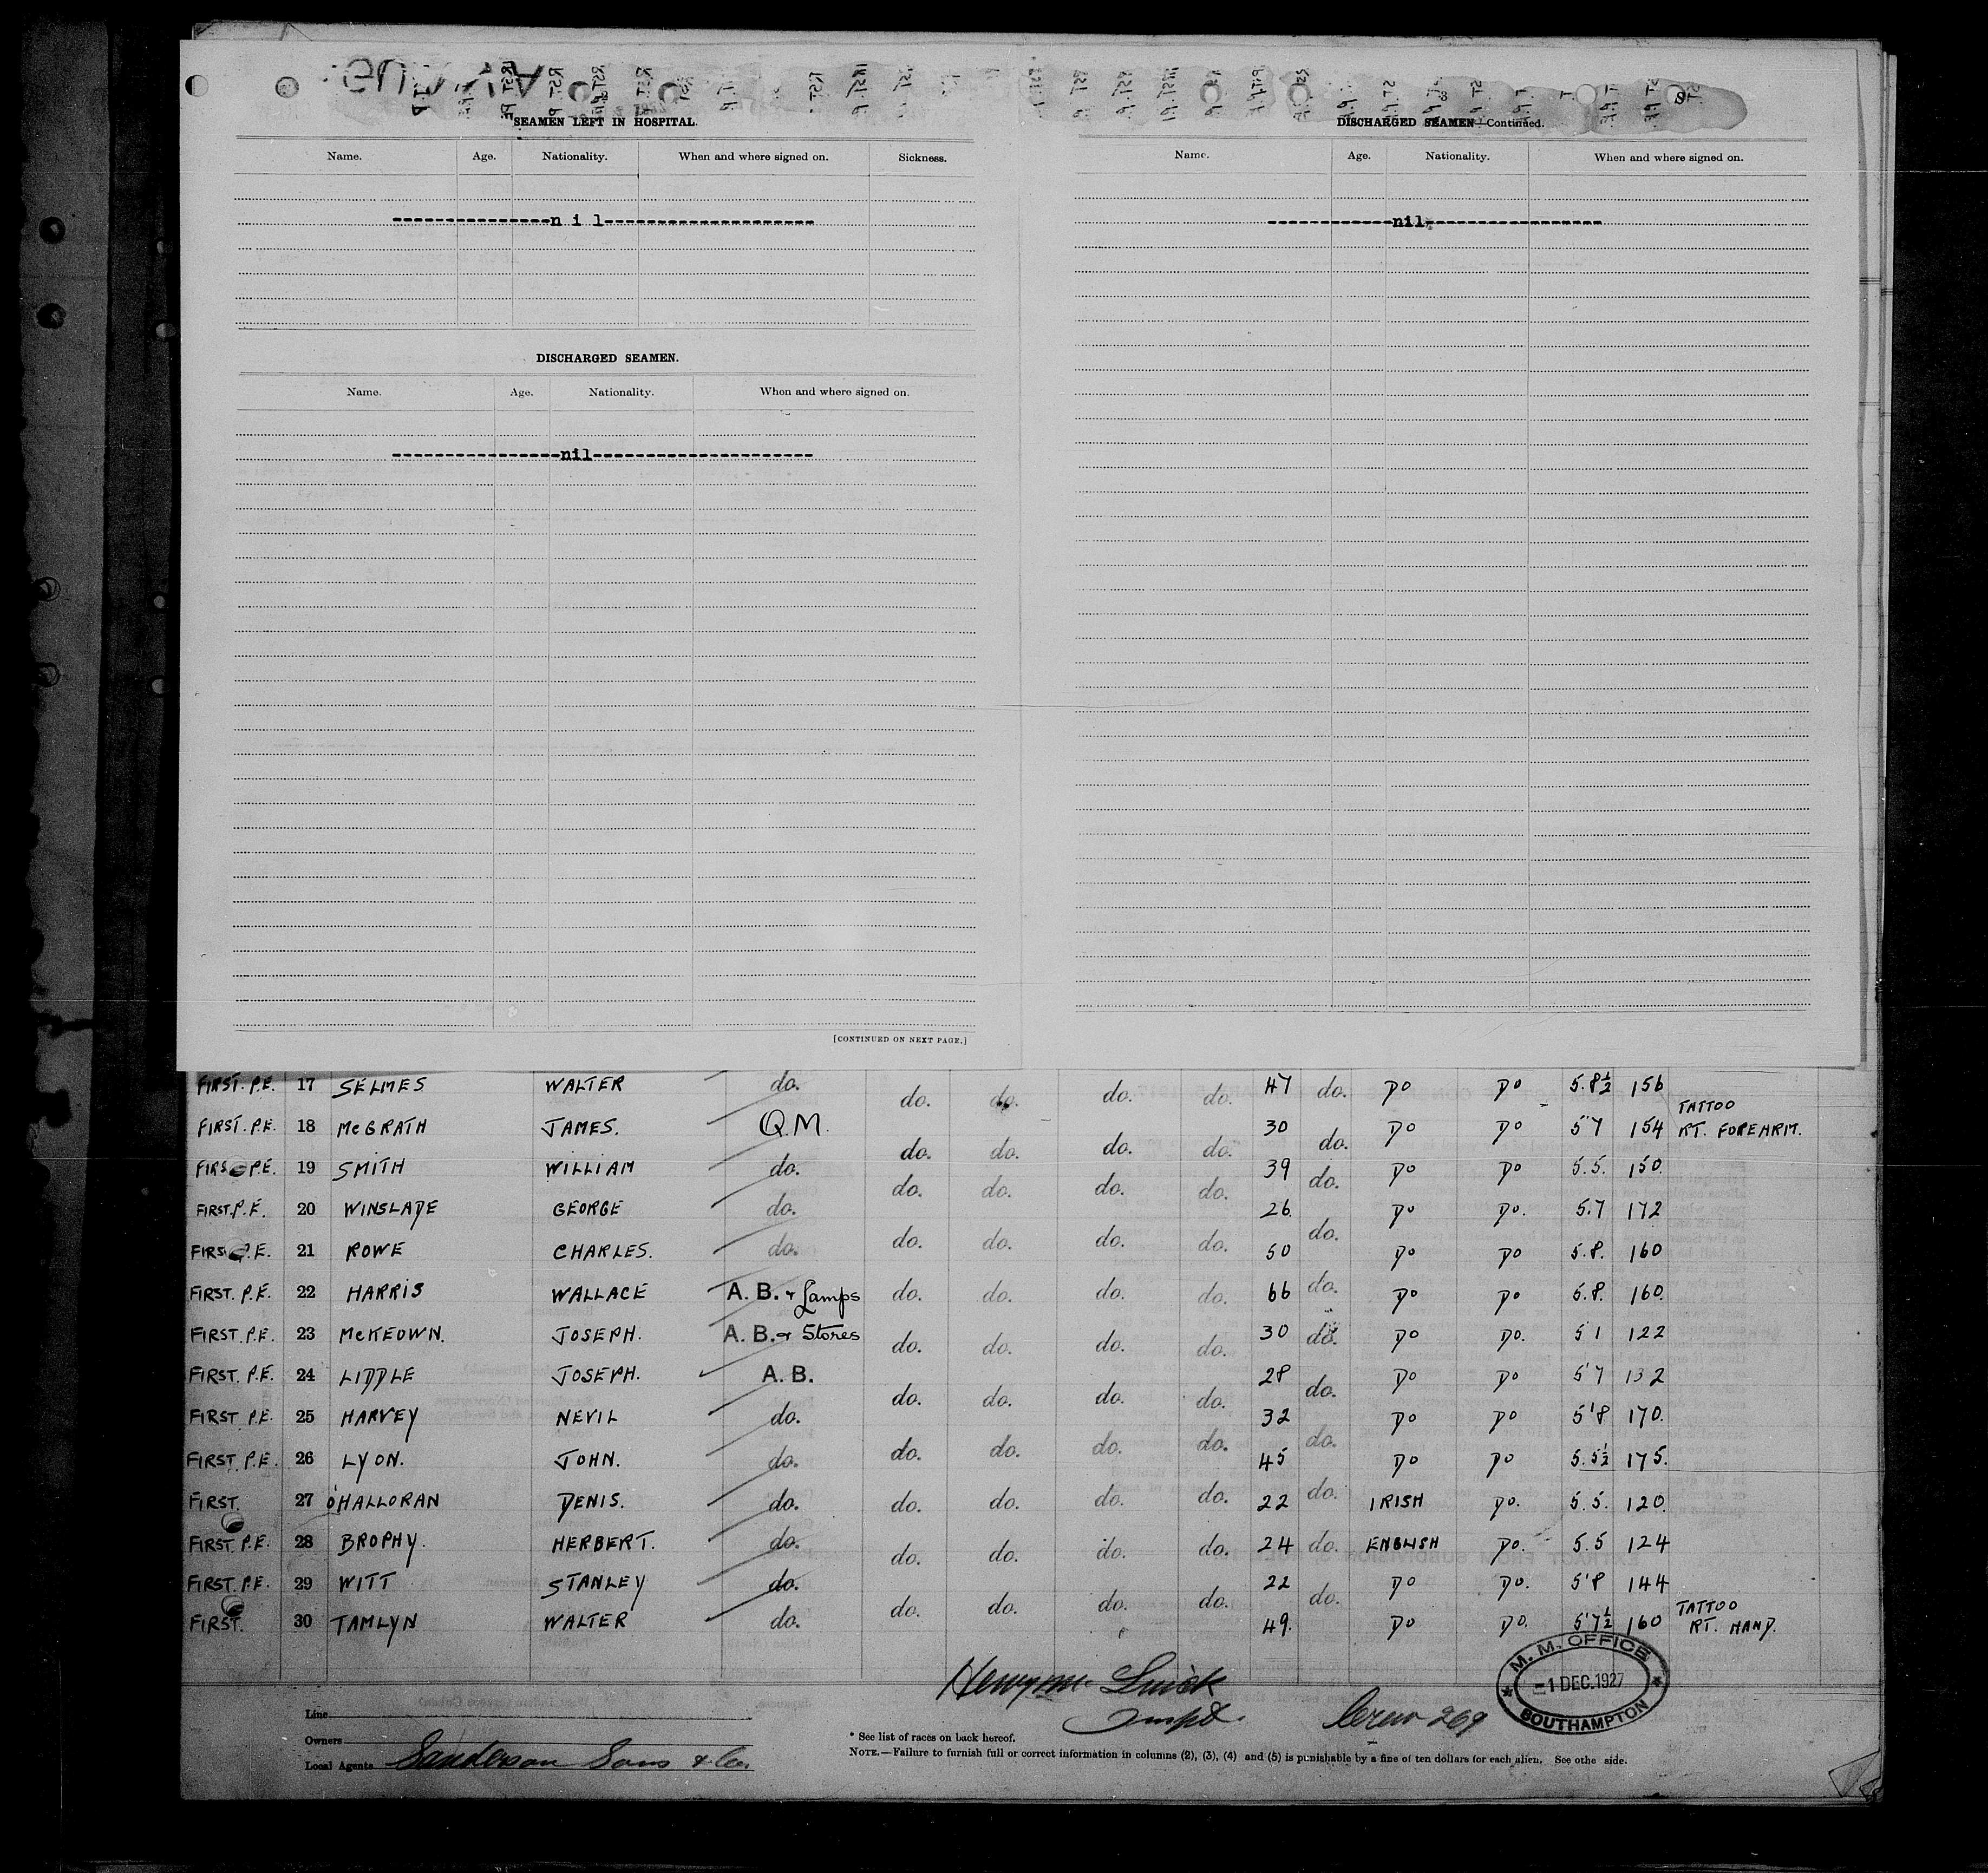 SEAMEN LEFT IN HOSPITAL.
Name. Age. Nationality. When and where signed on. Sickness.
---------------n i l--------------------
DISCHARGED SEAMEN.
Name. Age. Nationality. When and where signed on.
----------------nil---------------------
[CONTINUED ON NEXT PAGE.]
DISCHARGED SEAMEN—Continued.
Name. Age. Nationality. When and where signed on.
------------nil-----------------
FIRST. P.E. 17 SELMES WALTER do. do. do. do. do. 47 do. DO DO 5.8½ 156
TATTOO
FIRST. P.E. 18 McGRATH JAMES. Q.M. do. do. do. do. 30 do. DO DO 5'7 154 RT. FOREARM.
FIRST P.E. 19 SMITH WILLIAM do. do. do. do. do. 39 do. DO DO 5.5. 150
FIRST. P.E. 20 WINSLADE GEORGE do. do. do. do. do. 26. do. DO DO. 5.7 172
FIRST P.E. 21 ROWE CHARLES. do. do. do. do. do. 50 do. DO DO 5.8. 160
FIRST. P.E. 22 HARRIS WALLACE A. B. + Lamps do. do. do. do. 66 do. DO DO 5.8. 160.
FIRST. P.E. 23 McKEOWN. JOSEPH. A. B. + Stores do. do. do. do. 30 DO DO. 5 1 122
FIRST. P.E. 24 LIDDLE JOSEPH. A. B. do. do. do. do. 28 do. DO DO 5'7 132
FIRST P.E. 25 HARVEY NEVIL do. do. do. do. do. 32 do. DO DO 5'8 170.
FIRST. P.E. 26 LYON. JOHN. do. do. do. do. do. 45 do. DO DO 5.5½ 175.
FIRST. 27 O'HALLORAN DENIS. do. do. do. do. do. 22 IRISH DO. 5.5. 120.
FIRST. P.E. 28 BROPHY. HERBERT. do. do. do. do. do. 24 do. ENGLISH DO. 5.5 124
FIRST. P.E. 29 WITT STANLEY do. do. do. do. do. 22 do. DO DO. 5'8 144
TATTOO
FIRST. 30 TAMLYN WALTER do. 49. DO DO. 5'7½ 160 RT. HAND.
M. M. OFFICE
-1 DEC. 1927
SOUTHAMPTON
Crew 269
Line
Owners
Local Agents Sanderson Sons & Co.
* See list of races on back hereof.
NOTE.—Failure to furnish full or correct information in columns (2), (3), (4) and (5) is punishable by a fine of ten dollars for each alien. See othe side.